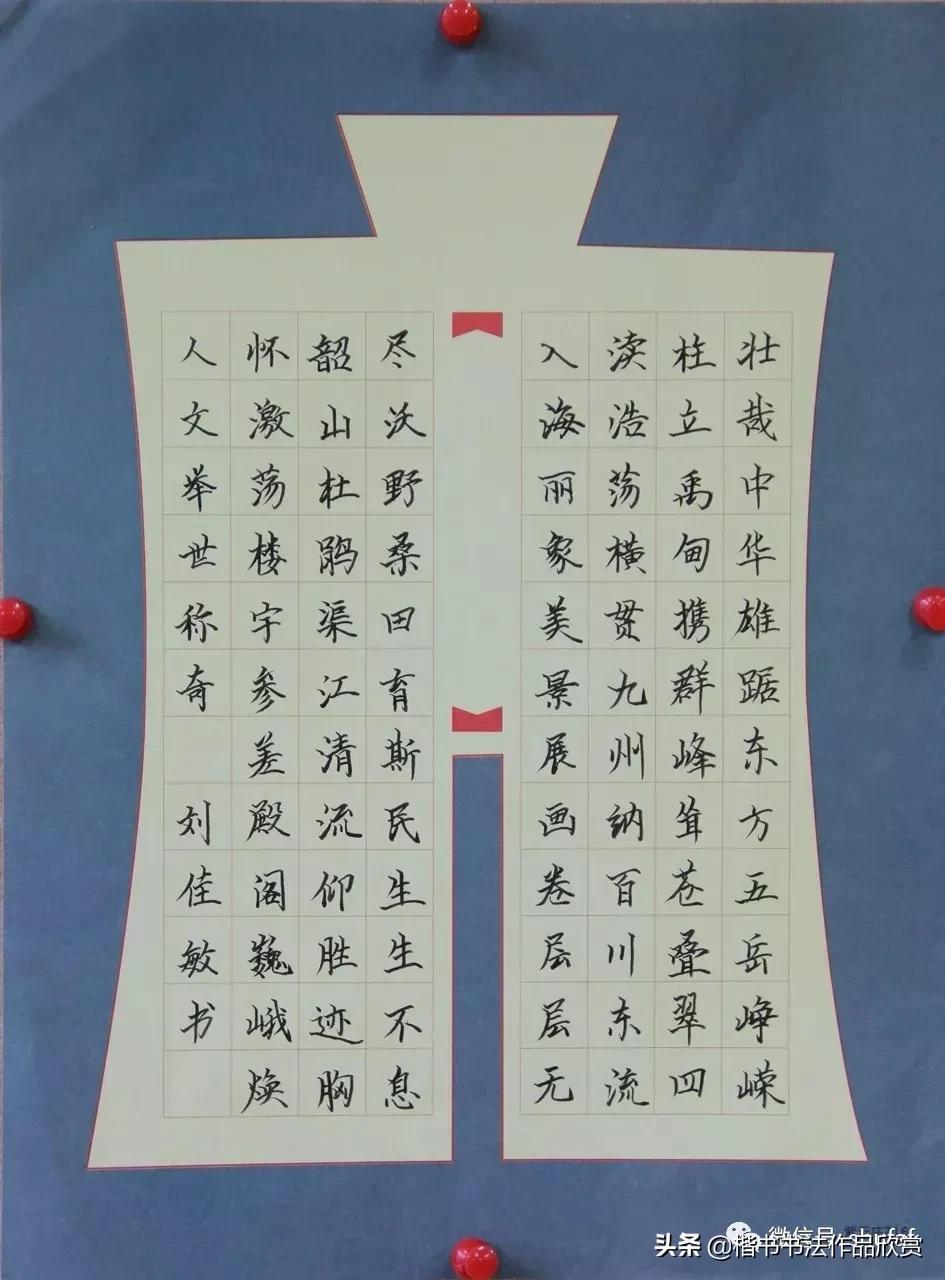 壮哉中华雄踞东方五岳峥嵘
柱立禹甸携群峰耸苍叠翠四
渎浩荡横贯九州纳百川东流
入海丽象美景展画卷层层无
尽沃野桑田育斯民生生不息
韶山杜鹃渠江清流仰胜迹胸
怀激荡楼宇参差殿阁巍峨焕
人文举世称奇
刘佳敏书
头条@楷书书法作品欣赏